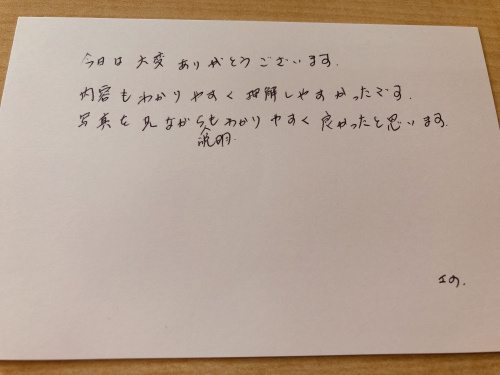 今日は大変ありがとうございます.
内容もわかりやすく理解しやすかったです.
写真を見ながら説明もわかりやすく良かったと思います.